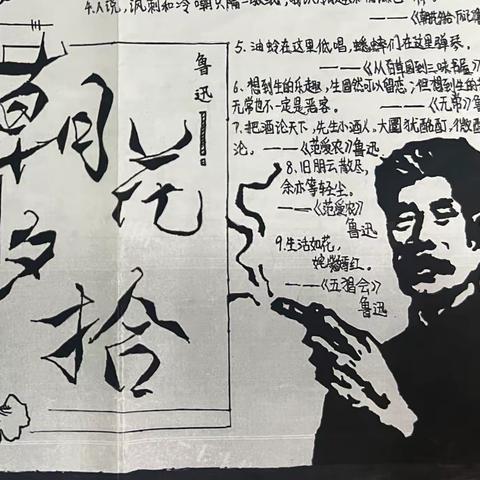 朝花
夕拾
鲁迅
4.人说,讽刺和冷嘲只隔一张纸,我
——《朝花夕拾
5. 油蛉在这里低唱,蟋蟀们在这里弹琴。
——《从百草园到三味书屋》
6. 想到生的乐趣,生固然可以留恋;但想到生的
无常也不一定是恶客. ——《无常》鲁
7. 把酒论天下,先生小酒人,大圜犹酩酊,微
沦. ——《范爱农》鲁迅
8.旧朋云散尽,
余亦等轻尘。
——《范爱农》
鲁迅
9.生活如花,
姹紫嫣红。
——《五猖会》
鲁迅